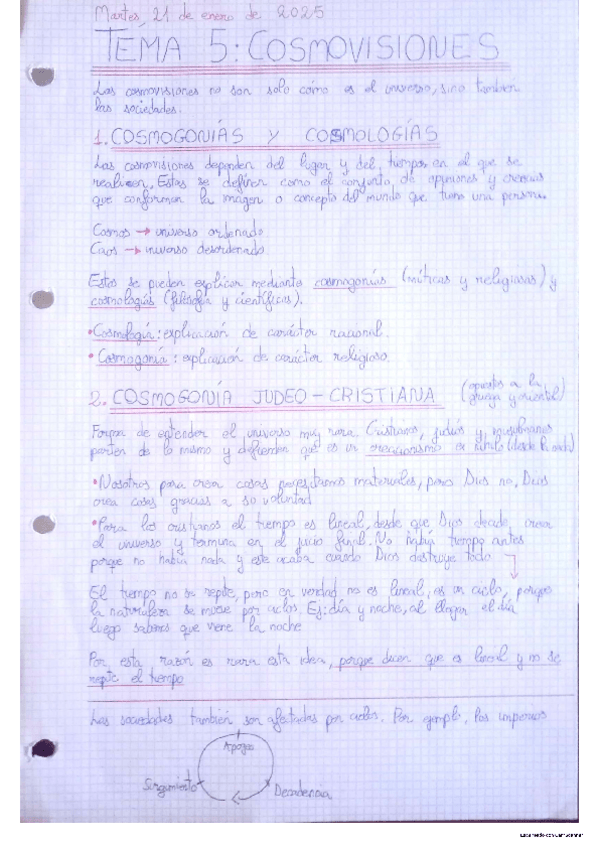 Martes, 21 de enero de 2025
TEMA 5: COSMOVISIONES
Las cosmovisiones no son solo cómo es el universo, sino también
las sociedades.
1. COSMOGONÍAS Y COSMOLOGÍAS
Las cosmovisiones dependen del lugar y del tiempo en el que se
realicen. Estas se definen como el conjunto de opiniones y creencias
que conforman la imagen o concepto del mundo que tiene una persona.
Cosmos → universo ordenado
Caos → universo desordenado
Estas se pueden explicar mediante cosmogonías (míticas y religiosas) y
cosmologías (filosofía y científicas).
• Cosmología: explicación de carácter racional.
• Cosmogonía: explicación de carácter religioso.
2. COSMOGONÍA JUDEO-CRISTIANA (opuestas a la
griega y oriental)
Forma de entender el universo muy rara. Cristianos, judíos y musulmanes
parten de lo mismo y defienden que es un creacionismo ex nihilo (desde la nada)
• Nosotros para crear cosas necesitamos materiales, pero Dios no, Dios
crea cosas gracias a su voluntad
• Para los cristianos el tiempo es lineal, desde que Dios decide crear
el universo y termina en el juicio final. No había tiempo antes
porque no había nada y este acaba cuando Dios destruye todo
El tiempo no se repite, pero en verdad no es lineal, es un ciclo, porque
la naturaleza se mueve por ciclos. Ej: día y noche, al llegar el día
luego sabemos que viene la noche
Por esta razón es rara esta idea, porque dicen que es lineal y no se
repite el tiempo
Las sociedades también son afectadas por ciclos. Por ejemplo, los imperios
Apogeo
Surgimiento
Decadencia